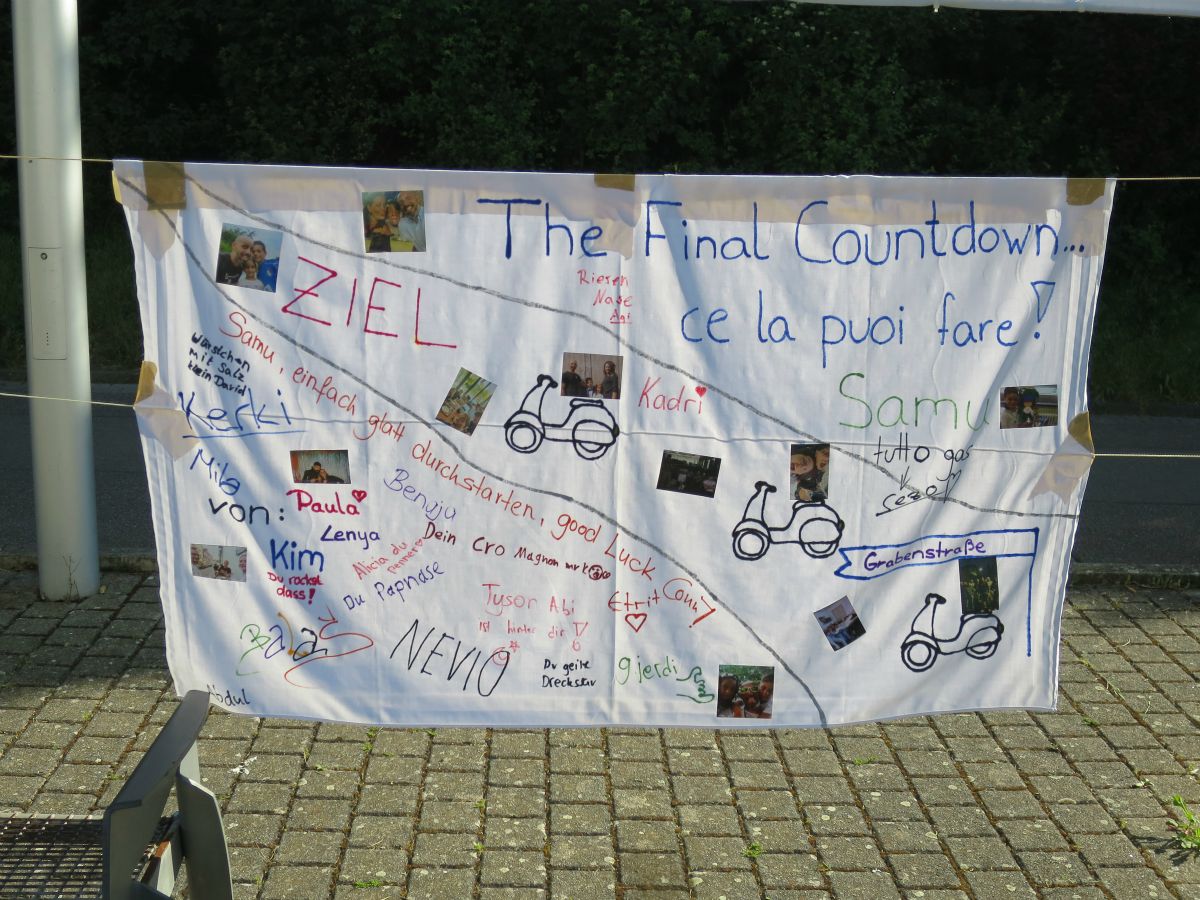 The Final Countdown...
ce la puoi fare!
ZIEL
Riesen
Nase
Agi
Samu, einfach glatt durchstarten, good Luck
Würstchen
mit Salz
klein David
Kerki
Kadri
Samu
tutto gas
Mila
von:
Paula
Benuju
Lenya
Dein Cro Magnon
Kim
Du rockst
dass!
Alicia du
penner
Du Papnase
Grabenstraße
Tyson Abi
ist hinter dir
Etrit
NEVIO
Du geile
gjerdi
Abdul